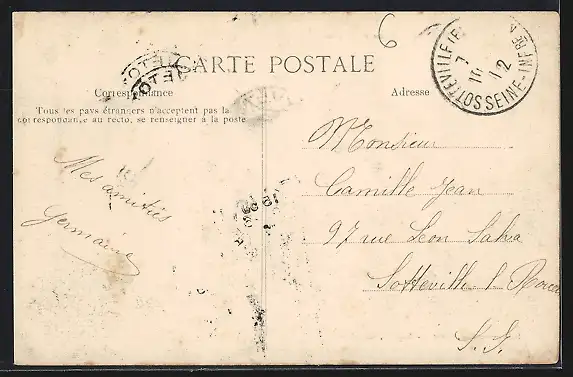 6
CARTE POSTALE
Correspondance
Adresse
Tous les pays étrangers n'acceptent pas la
correspondance au recto, se renseigner à la poste
Mes amitiés
Germaine
Monsieur
Camille Jean
97 rue Léon Salva
Sotteville l Rouen
S. I.
7
12